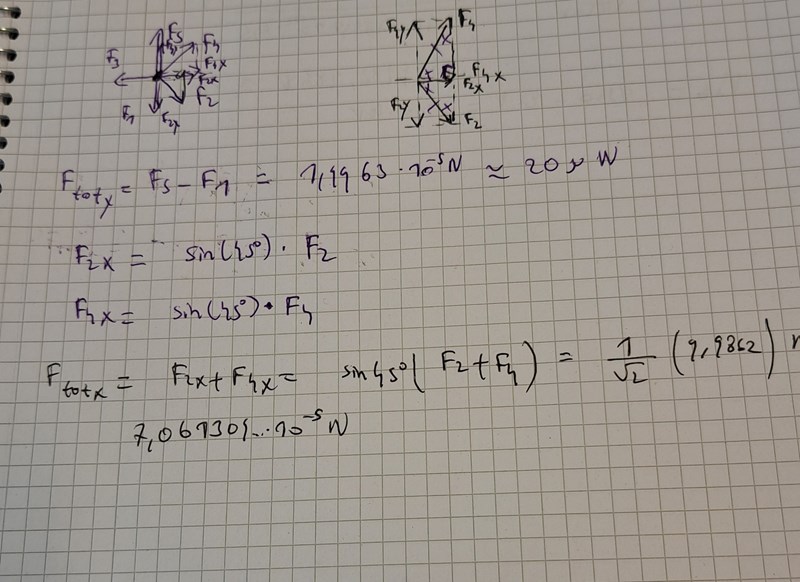 F5 F4y F4
F3 F4 F4x
F2x F4x F2x
F2
F1 F2y F4 F2
F_tot_y = F5 - F1 = 1,9963 · 10⁻⁵ N ≃ 20 μN
F2x = sin(45°) · F2
F4x = sin(45°) · F4
F_totx = F2x + F4x = sin 45° ( F2 + F4 ) = 1/√2 (9,9862)
7,061301... · 10⁻⁵ N